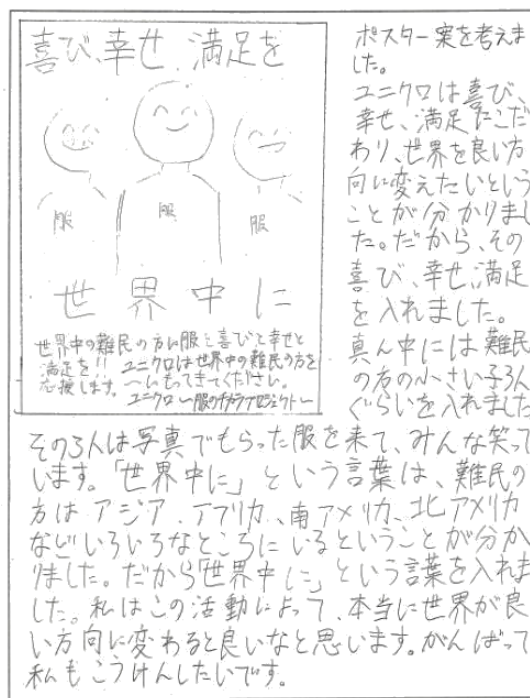 喜び、幸せ、満足を
服
服
服
世界中に
世界中の難民の方に服と喜びと幸せと
満足を!! ユニクロは世界中の難民の方を
応援します。 〜いもってきてください。
ユニクロ〜服のチカラプロジェクト〜
ポスター案を考えま
した。
ユニクロは喜び、
幸せ、満足にこだ
わり、世界を良い方
向に変えたいという
ことが分かりまし
た。だから、その
喜び、幸せ、満足
を入れました。
真ん中には難民
の方の小さい子3人
ぐらいを入れました
その3人は写真でもらった服を来て、みんな笑って
います。「世界中に」という言葉は、難民の
方はアジア、アフリカ、南アメリカ、北アメリカ
などいろいろなところにいるということが分か
りました。だから「世界中に」という言葉を入れま
した。私はこの活動によって、本当に世界が良
い方向に変わると良いなと思います。がんばって
私もこうけんしたいです。